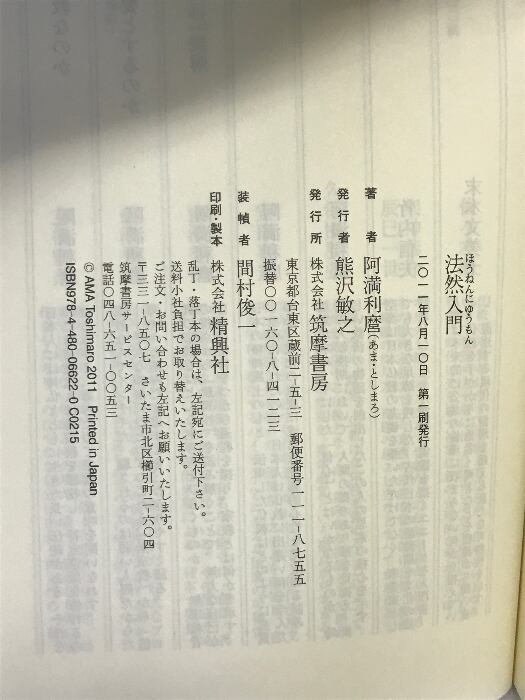 法然入門
ほうねんにゅうもん
二〇一一年八月一〇日　第一刷発行
著　者　阿満利麿(あま・としまろ)
発行者　熊沢敏之
発行所　株式会社 筑摩書房
東京都台東区蔵前二-五-三　郵便番号一一一-八七五五
振替〇〇一六〇-八-四一二三
装幀者　間村俊一
印刷・製本　株式会社 精興社
乱丁・落丁本の場合は、左記宛にご送付下さい。
送料小社負担でお取り替えいたします。
ご注文・お問い合わせも左記へお願いいたします。
〒三三一-八五〇七　さいたま市北区櫛引町二-六〇四
筑摩書房サービスセンター
電話〇四八-六五一-〇〇五三
© AMA Toshimaro 2011 Printed in Japan
ISBN978-4-480-06622-0 C0215